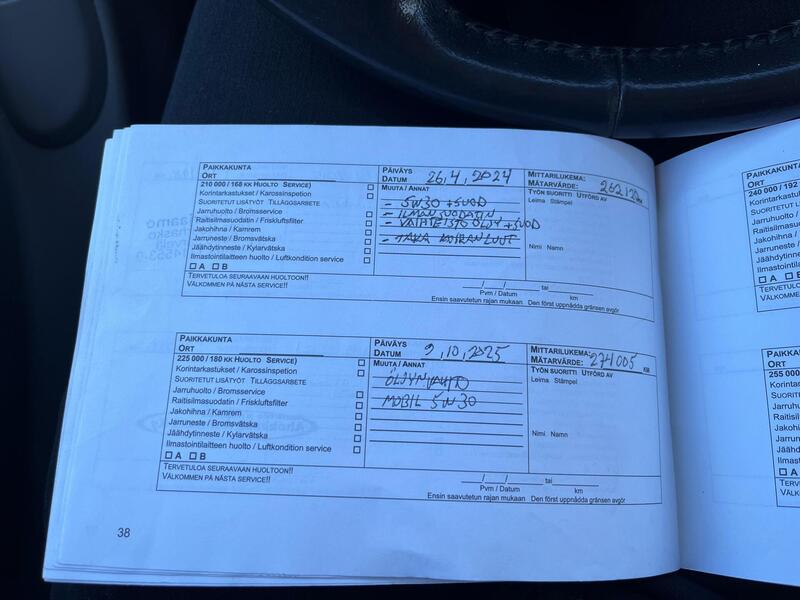 PAIKKAKUNTA
ORT
PÄIVÄYS
DATUM 26,4,2024
MITTARILUKEMA:
MÄTARVÄRDE:
210 000 / 168 KK HUOLTO SERVICE)
MUUTA / ANNAT
TYÖN SUORITTI UTFÖRD AV
Leima Stämpel
Korintarkastukset / Karossinspetion
SUORITETUT LISÄTYÖT TILLÄGGSARBETE
Jarruhuolto / Bromsservice
Raitisilmasuodatin / Friskluftsfilter
Jakohihna / Kamrem
Jarruneste / Bromsvätska
Jäähdytinneste / Kylarvätska
Ilmastointilaitteen huolto / Luftkondition service
A B
- 5W30 + SUOD
- ILMANSUODATIN,
- VAIHTEISTO ÖLJY + SUOD
- TAKA KOIRANLUUT
Nimi Namn
TERVETULOA SEURAAVAAN HUOLTOON!!
VÄLKOMMEN PÅ NÄSTA SERVICE!!
/ / tai
Pvm / Datum km
Ensin saavutetun rajan mukaan Den först uppnådda gränsen avgör
PAIKKAKUNTA
ORT
PÄIVÄYS
DATUM 9,10,2025
MITTARILUKEMA:
MÄTARVÄRDE: 274005 KM
225 000 / 180 KK HUOLTO SERVICE)
MUUTA / ANNAT
TYÖN SUORITTI UTFÖRD AV
Leima Stämpel
Korintarkastukset / Karossinspetion
SUORITETUT LISÄTYÖT TILLÄGGSARBETE
Jarruhuolto / Bromsservice
Raitisilmasuodatin / Friskluftsfilter
Jakohihna / Kamrem
Jarruneste / Bromsvätska
Jäähdytinneste / Kylarvätska
Ilmastointilaitteen huolto / Luftkondition service
A B
ÖLJYNVAIHTO
MOBIL 5W30
Nimi Namn
TERVETULOA SEURAAVAAN HUOLTOON!!
VÄLKOMMEN PÅ NÄSTA SERVICE!!
/ / tai
Pvm / Datum km
Ensin saavutetun rajan mukaan Den först uppnådda gränsen avgör
38
PAIKKAKUNTA
ORT
240 000 / 192
Korintarkastu
SUORITETUT LI
Jarruhuolto /
Raitisilmasuo
Jakohihna /
Jarruneste /
Jäähdytinne
Ilmastointila
A B
TERVETULOA
VÄLKOMMEN
PAIKKAKUN
ORT
255 000
Korintar
SUORITE
Jarruhu
Raitisil
Jakohi
Jarrun
Jäähd
Ilmast
A
TERVE
VÄLKO